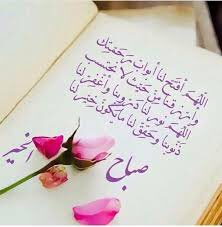 اللهم افتح لنا أبواب رحمتك
وارزقنا من حيث لا نحتسب
اللهم نور لنا دروبنا واغفر لنا
ذنوبنا وحقق لنا ما يكون خير لنا
صباح
الخير